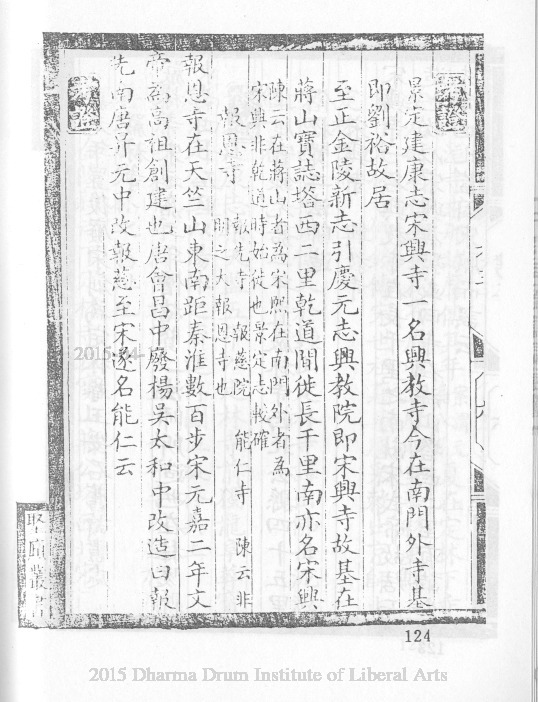 景定建康志宋興寺一名興教寺今在南門外寺基
即劉裕故居
至正金陵新志引慶元志興教院即宋興寺故基在
蔣山寶誌塔西二里乾道間徙長千里南亦名宋興
陳云在蔣山者為宋熈在南門外者為
宋興非乾道時始徙也景定志較確
報恩寺
報先寺 報慈院 能仁寺 陳云非
明之大報恩寺也
報恩寺在天竺山東南距秦淮數百步宋元嘉二年文
帝為高祖創建也唐會昌中廢楊吳太和中改造曰報
先南唐昇元中改報慈至宋遂名能仁云
124
2015 Dharma Drum Institute of Liberal Arts